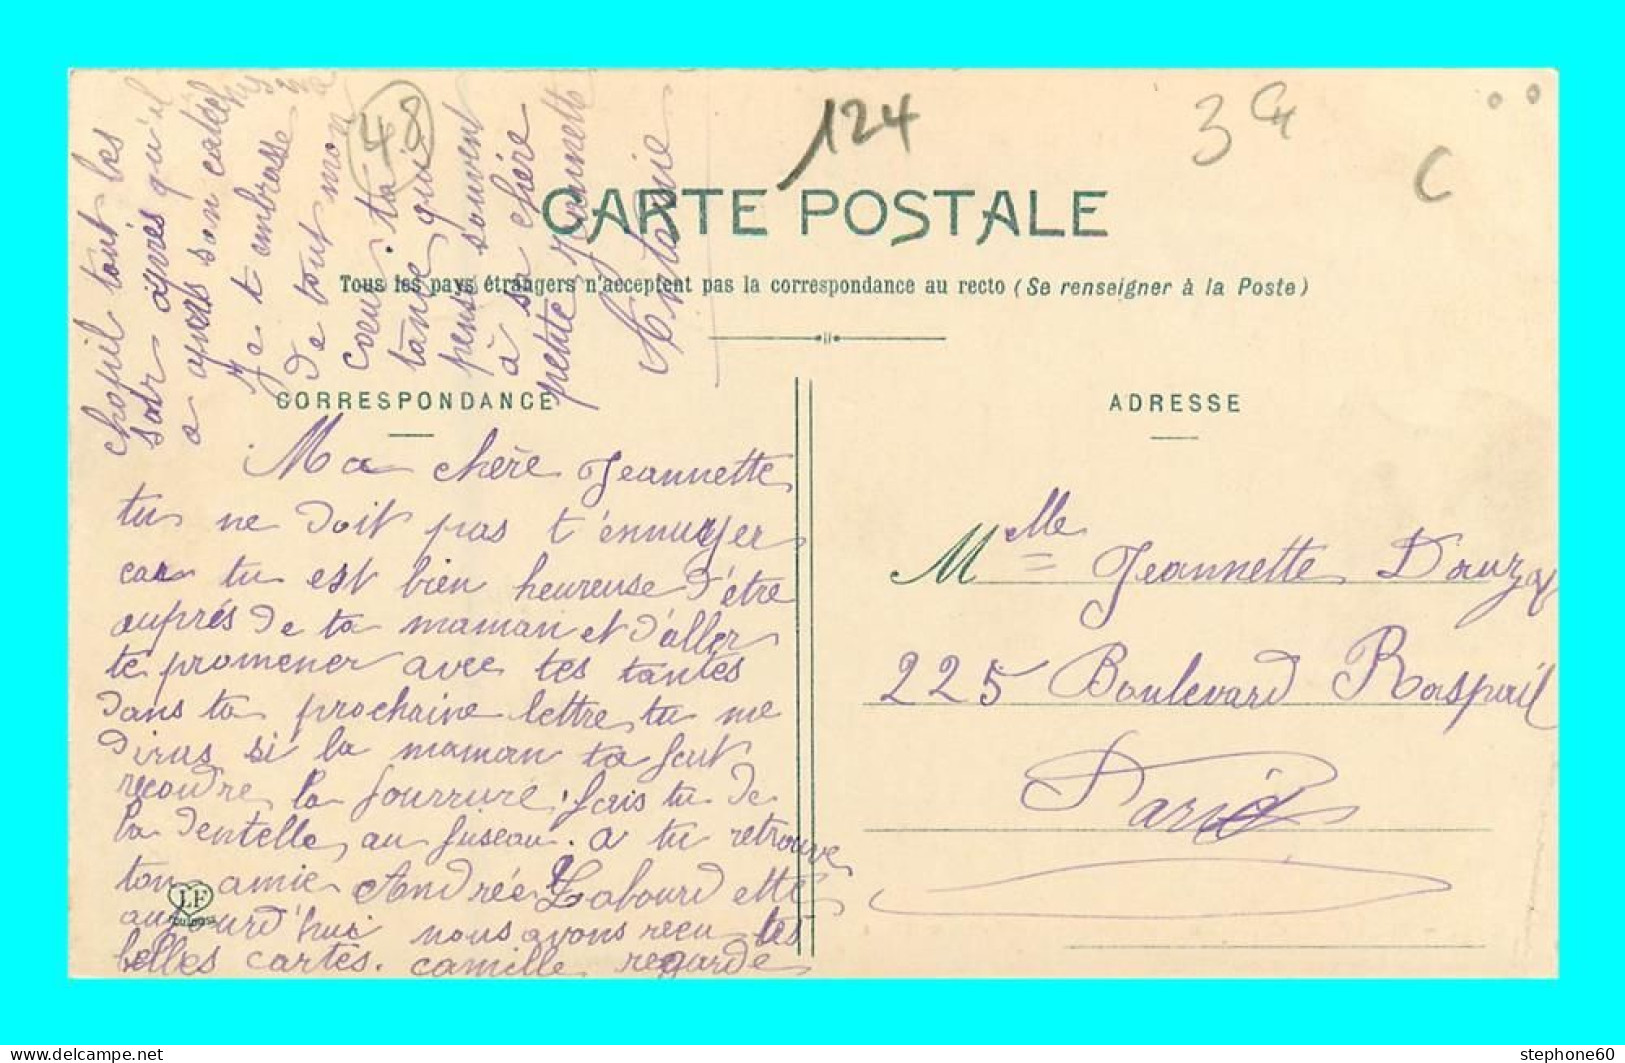 124
3
48
C
CARTE POSTALE
Tous les pays étrangers n'acceptent pas la correspondance au recto (Se renseigner à la Poste)
CORRESPONDANCE
ADRESSE
Ma chère Jeannette
tu ne doit pas t'ennuyer
car tu est bien heureuse d'être
auprés de ta maman et d'aller
te promener avec tes tantes
dans ta prochaine lettre tu me
diras si la maman ta fait
recoudre la fourrure. fais tu de
la dentelle au fuseau. a tu retrouve
ton amie Andrée Labourdette
aujourd'hui nous avons recu tes
belles cartes. camille regarde
tout les
soir après qu'il
a apris son
Je t embrasse
de tout mon
coeur. ta
tante qui
pense souvent
à sa chère
petite Jeannette
Antoinie
Mlle Jeannette Dauzy
225 Boulevard Raspail
Paris
LF
Toulouse
stephone60